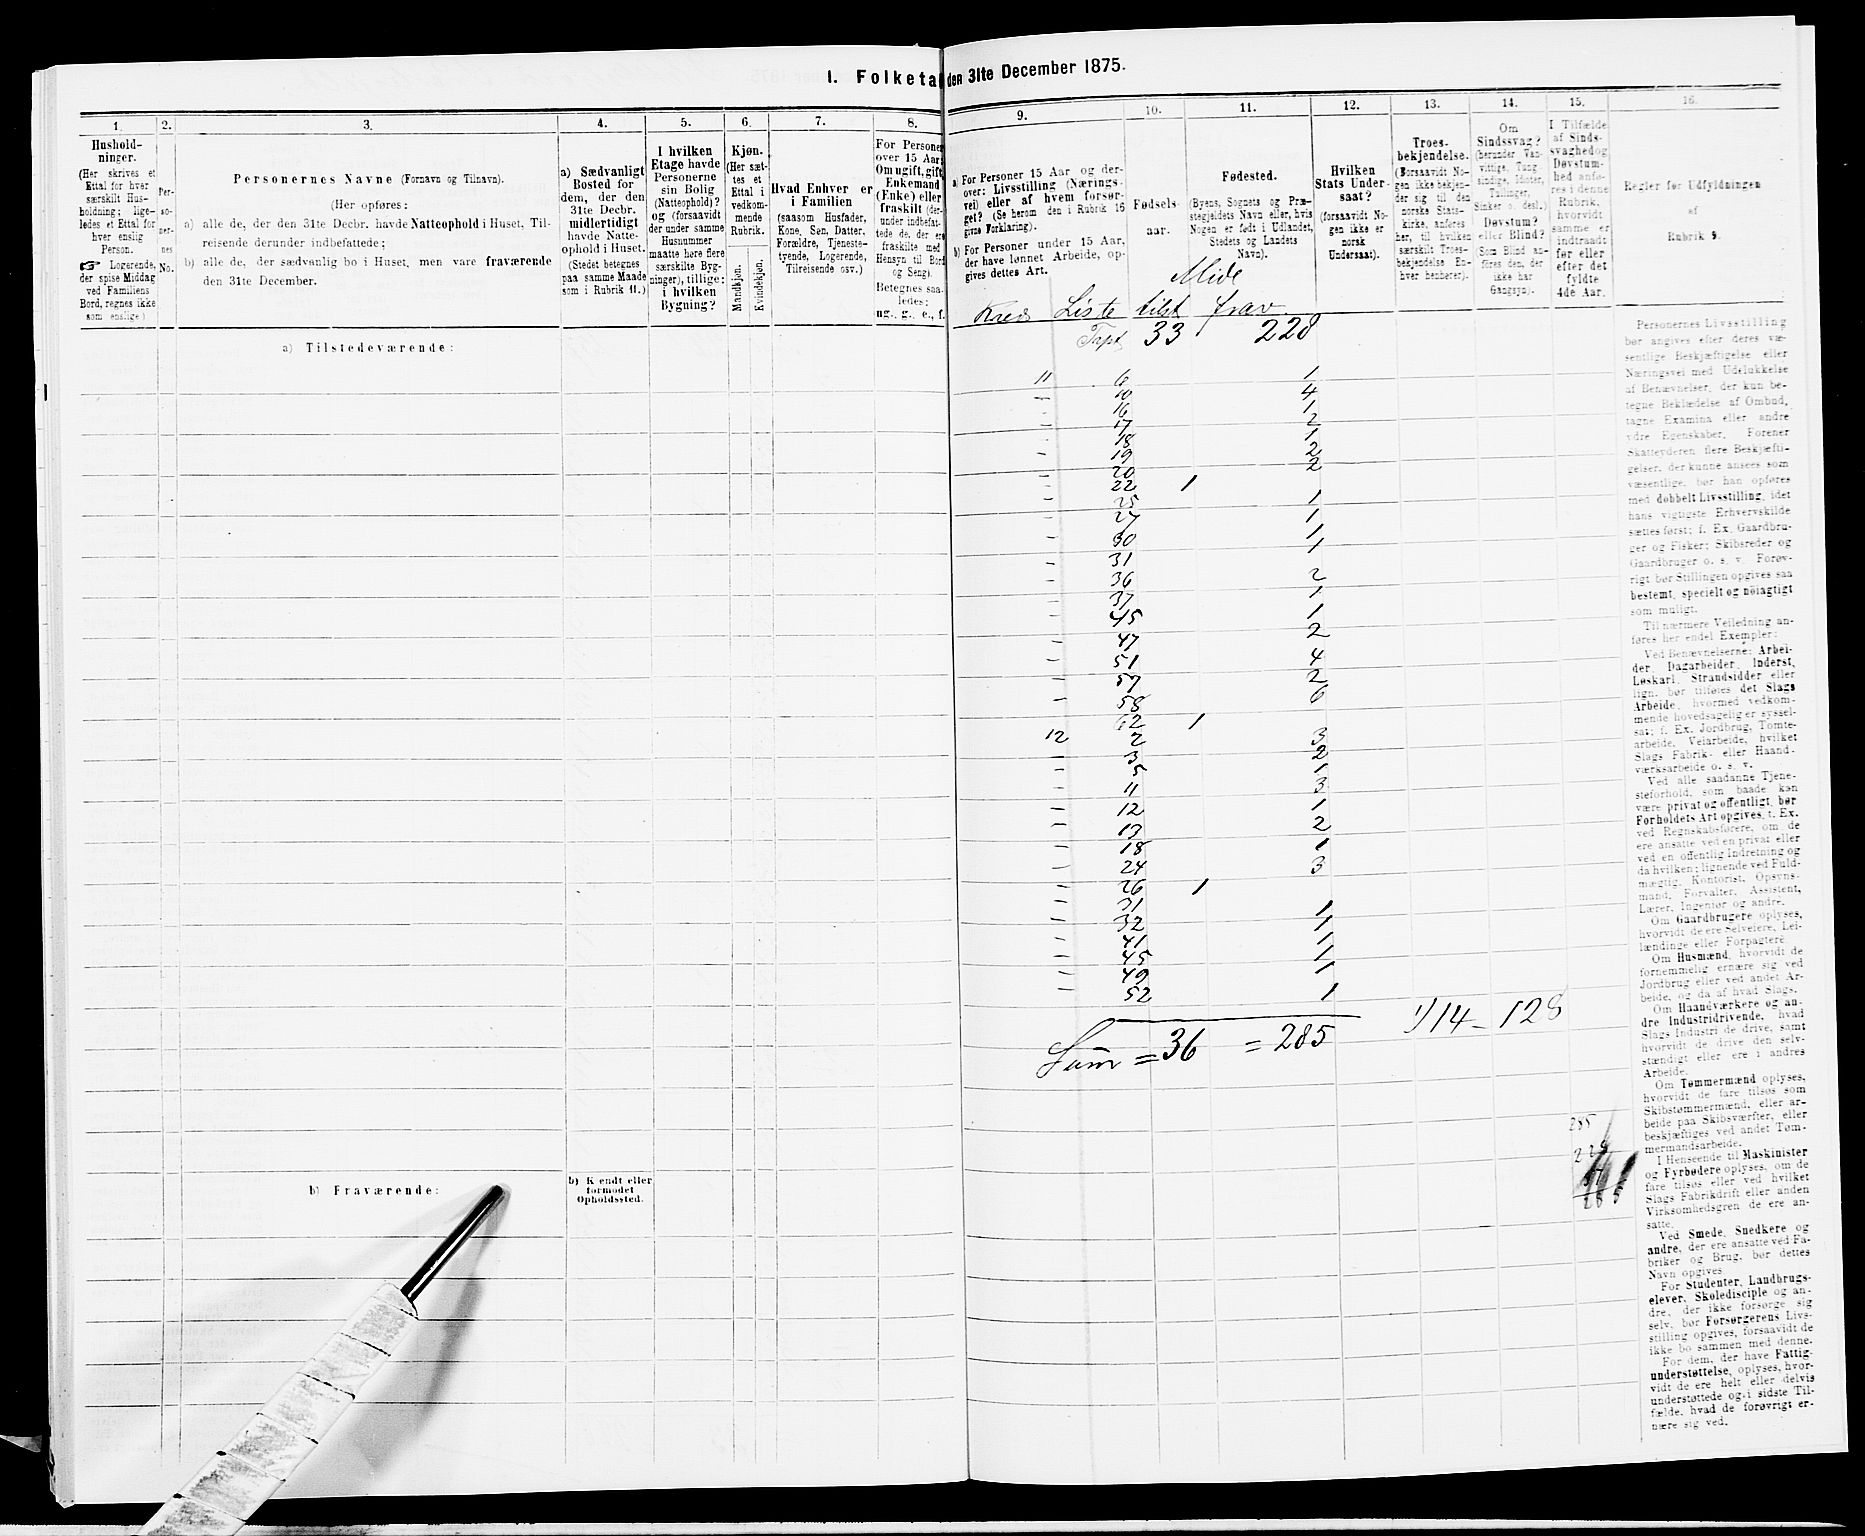 I. Folketal den 31te December 1875.
1.
Hushold-
ninger.
(Her skrives et
Ettal for hver
særskilt Hus-
holdning; lige-
ledes et Ettal for
hver enslig
Person.
☞ Logerende,
der spise Middag
ved Familiens
Bord, regnes ikke
som enslige.)
2.
Per-
so-
ner-
nes
No.
3.
Personernes Navne (Fornavn og Tilnavn).
(Her opføres:
a) alle de, der den 31te Decbr. havde Natteophold i Huset, Til-
reisende derunder indbefattede;
b) alle de, der sædvanlig bo i Huset, men vare fraværende
den 31te December.
4.
a) Sædvanligt
Bosted for
dem, der den
31te Decbr.
midlertidigt
havde Natte-
ophold i Huset.
(Stedet betegnes
paa samme Maade
som i Rubrik 11.)
5.
I hvilken
Etage havde
Personerne
sin Bolig
(Natteophold)?
og (forsaavidt
der under samme
Husnummer
maatte høre flere
særskilte Byg-
ninger), tillige:
i hvilken
Bygning?
6.
Kjøn.
(Her sæt-
tes et
Ettal i
vedkom-
mende
Rubrik.
Mandkjøn.
Kvindekjøn.
7.
Hvad Enhver er
i Familien
(saasom Husfader,
Kone, Søn, Datter,
Forældre, Tjeneste-
tyende, Logerende,
Tilreisende osv.)
8.
For Personer
over 15 Aar:
Om ugift, gift,
Enkemand
(Enke) eller
fraskilt (der-
under indbefat-
tede de, der ere
fraskilte med
Hensyn til Bord
og Seng).
Betegnes saa-
ledes:
ug., g., e., f.
9.
a) For Personer 15 Aar og der-
over: Livsstilling (Nærings-
vei) eller af hvem forsør-
get? (Se herom den i Rubrik 16
givne Forklaring).
b) For Personer under 15 Aar,
der have lønnet Arbeide, op-
gives dettes Art.
10.
Fødsels-
aar.
11.
Fødested.
(Byens, Sognets og Præ-
stegjeldets Navn eller, hvis
Nogen er født i Udlandet,
Stedets og Landets
Navn).
12.
Hvilken
Stats Under-
saat?
(forsaavidt No-
gen ikke er
norsk
Undersaat).
13.
Troes-
bekjendelse.
(Forsaavidt No-
gen ikke bekjen-
der sig til den
norske Stats-
kirke, anføres
her, til hvilken
særskilt Troes-
bekjendelse En-
hver henhører).
14.
Om
Sindssvag?
(herunder Van-
vittige, Tung-
sindige, Idioter,
Tullinger,
Sinker o. desl.)
Døvstum?
eller Blind?
(Som Blind an-
føres den, der
ikke har
Gangsyn).
15.
I Tilfælde
af Sinds-
svaghed og
Døvstum-
hed anfø-
res i denne
Rubrik,
hvorvidt
samme er
indtraadt
før eller
efter det
fyldte
4de Aar.
16.
Regler før Udfyldningen
af
Rubrik 9.
Mide
Kreds Liste tilst frav.
Tapt 33 228
a) Tilstedeværende:
11 6 1
" 10 4
" 16 1
" 17 2
" 18 1
" 19 2
" 20 2
" 22 1
" 25 1
" 27 1
" 30 1
" 31 1
" 36 2
" 37 1
" 45 1
" 47 2
" 51 4
" 57 2
" 58 6
" 62 1
12 2 3
" 3 2
" 5 1
" 11 3
" 12 1
" 13 2
" 18 1
" 24 3
" 26 1
" 31 1
" 32 1
" 41 1
" 45 1
" 49 1
" 52 1
Sum = 36 = 285
114 - 128
285
228
57
285
b) Fraværende:
b) Kjendt eller
formodet
Opholdssted.
Personernes Livsstilling
bør angives efter deres væ-
sentlige Beskjæftigelse eller
Næringsvei med Udelukkelse
af Benævnelser, der kun be-
tegne Beklædelse af Ombud,
tagne Examina eller andre
ydre Egenskaber. Forener
Skatteyderen flere Beskjæfti-
gelser, der kunne ansees som
væsentlige, bør han opføres
med dobbelt Livsstilling, idet
hans vigtigste Erhvervskilde
sættes først; f. Ex. Gaardbru-
ger og Fisker; Skibsreder og
Gaardbruger o. s. v. Forøv-
rigt bør Stillingen opgives saa
bestemt, specielt og nöiagtigt
som muligt.
Til nærmere Veiledning an-
føres her endel Exempler:
Ved Benævnelserne: Arbei-
der, Dagarbeider, Inderst,
Løskarl, Strandsidder eller
lign. bør tilføies det Slags
Arbeide, hvormed vedkom-
mende hovedsagelig er syssel-
sat; f. Ex. Jordbrug, Tomte-
arbeide, Veiarbeide, hvilket
Slags Fabrik- eller Haand-
værksarbeide o. s. v.
Ved alle saadanne Tjene-
steforhold, som baade kan
være privat og offentligt, bør
Forholdets Art opgives, f. Ex.
ved Regnskabsførere, om de
ere ansatte ved en privat eller
ved en offentlig Indretning og
da hvilken; lignende ved Fuld-
mægtig, Kontorist, Opsyns-
mand, Forvalter, Assistent,
Lærer, Ingeniør og andre.
Om Gaardbrugere oplyses,
hvorvidt de ere Selveiere, Lei-
lændinge eller Forpagtere.
Om Husmænd, hvorvidt de
fornemmelig ernære sig ved
Jordbrug eller ved andet Ar-
beide, og da af hvad Slags.
Om Haandværkere og an-
dre Industridrivende, hvad
Slags Industri de drive, samt
hvorvidt de drive den selv-
stændigt eller ere i andres
Arbeide.
Om Tømmermænd oplyses,
hvorvidt de fare tilsøs som
Skibstømmermænd, eller ar-
beide paa Skibsværfter, eller
beskjæftiges ved andet Tøm-
mermandsarbeide.
I Henseende til Maskinister
og Fyrbødere oplyses, om de
fare tilsøs eller ved hvilket
Slags Fabrikdrift eller anden
Virksomhedsgren de ere an-
satte.
Ved Smede, Snedkere og
andre, der ere ansatte ved Fa-
briker og Brug, bør dettes
Navn opgives.
For Studenter, Landbrugs-
elever, Skoledisciple og an-
dre, der ikke forsørge sig
selv, bør Forsørgerens Livs-
stilling opgives, forsaavidt de
ikke bo sammen med denne.
For dem, der have Fattig-
understøttelse, oplyses, hvor-
vidt de ere helt eller delvis
understøttede og i sidste Til-
fælde, hvad de forøvrigt er-
nære sig ved.